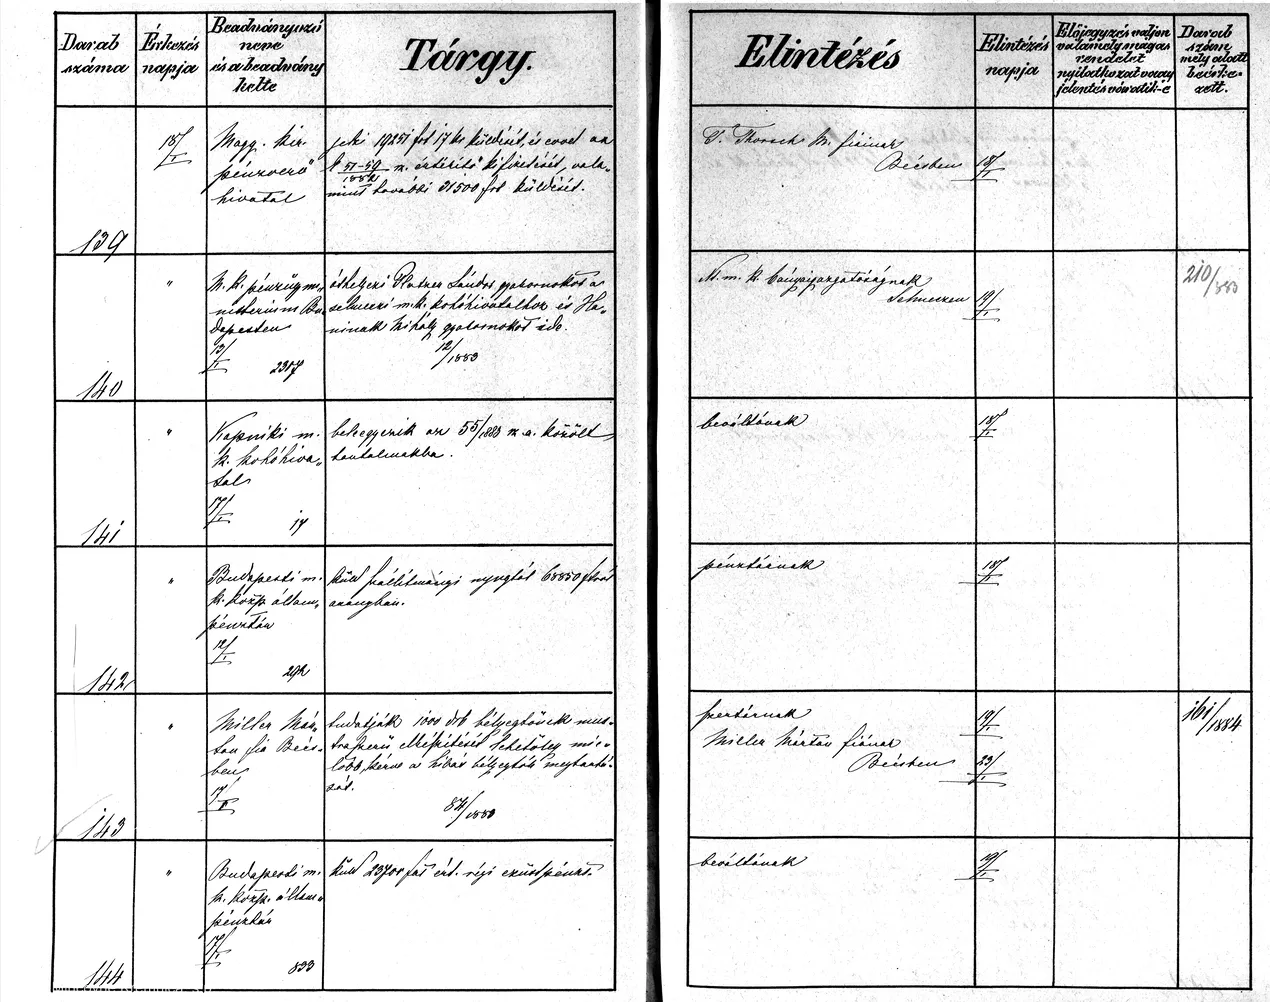 Darab száma
Érkezés napja
Beadványozó neve és a beadvány kelte
Tárgy.
Elintézés
Elintézés napja
Előjegyzés valjon valamely magas rendelet nyilatkozat vagy jelentés váratik-é
Darab szám mely alatt beérkezett.
139
18/I
Magy. kir.
pénzverő
hivatal
19251 frt 17 kr küldését, és
51-59/1882 sz. értérítő kifizetését, vala-
mint további 21500 frt küldését.
M. fiainak
Bécsben
18/I
140
"
M. k. pénzügymi-
nisterium Bu-
dapesten
13/I
2317
áthelyezi Sándor gyakornokot a
selmeczi m. k. kohóhivatalhoz és Ha-
Mihály gyakornokot ide.
12/1883
N. m. k. bányaigazgatóságnak
Selmeczen
19/I
210/883
141
"
Kapniki m.
k. kohóhiva-
tal
17/I
17
beleegyezik az 55/1883 sz. a. közölt
tartalmakba.
beváltónak
18/I
142
"
Budapesti m.
k. közp. állam-
pénztár
12/I
292
küld szállítmányi nyugtát 68850 frtról
aranyban.
pénztárnak
18/I
143
"
Miller Már-
ton fia Bécs-
ben
17/I
tudatják 1000 drb bélyegtőnek
elkészítését lehetőleg
kérve a hibás bélyegtők megtartá-
sát.
84/1883
szertárnak
19/I
Miller Márton fiának
Bécsben
23/I
161/1884
144
"
Budapesti m.
k. közp. állam-
pénztár
17/I
833
küld 23700 frt ért. régi ezüstpénzt.
beváltónak
19/I